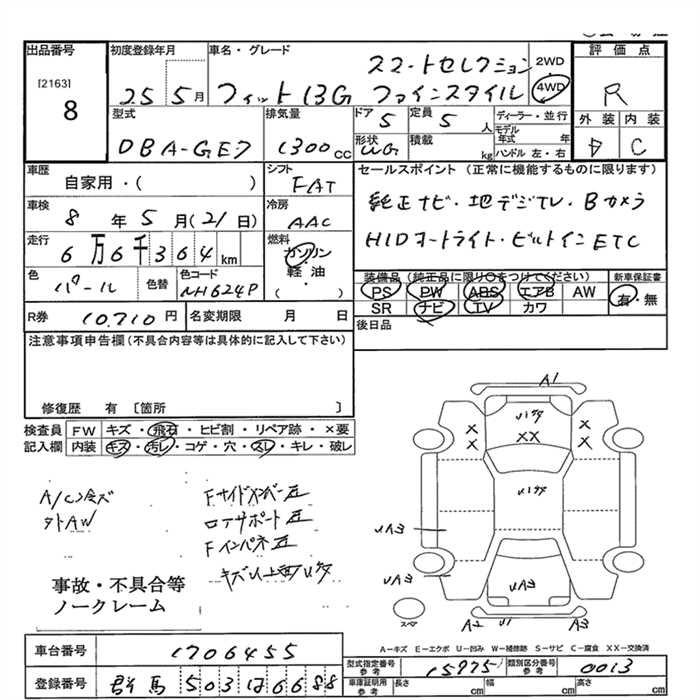 出品番号
[2163]
8
初度登録年月
25 5月
車名・グレード
スマートセレクション
フィット13G ファインスタイル
2WD
4WD
評価点
R
外装 内装
D C
型式
DBA-GE7
排気量
1300cc
ドア
5
定員
5人
形状
積載
kg
ディーラー・並行
モデル年式 年
ハンドル 左・右
車歴
自家用・( )
シフト
FAT
車検
8年5月(21日)
冷房
AAC
走行
6万6千364km
燃料
ガソリン
軽油
・( )
色
パール
色替
色コード
NH624P
セールスポイント(正常に機能するものに限ります)
純正ナビ・地デジTV・Bカメラ
HIDオートライト・ビルトインETC
装備品(純正品に限り○をつけてください)
PS PW ABS エアB AW
SR ナビ TV カワ
新車保証書
有・無
R券
10,710円
名変期限 月 日
後日品
注意事項申告欄(不具合内容等は具体的に記入して下さい)
修復歴 有〔箇所 〕
検査員 FW キズ・飛石・ヒビ割・リペア跡・×要
記入欄 内装 キズ・汚レ・コゲ・穴・スレ・キレ・破レ
外AW
Fサイドメンバー
ロアサポート
Fインパネ
事故・不具合等
ノークレーム
A1
XX
X
X
X
X
UA3
UA3
UA3
A2
U1
A3
スペア
A-キズ E-エクボ U-凹み W-補修跡 S-サビ C-腐食 XX-交換済
車台番号
1706455
登録番号
群馬503
型式指定番号 参考
15975
類別区分番号 参考
0013
車庫証明用 参考
長さ cm
幅 cm
高さ cm